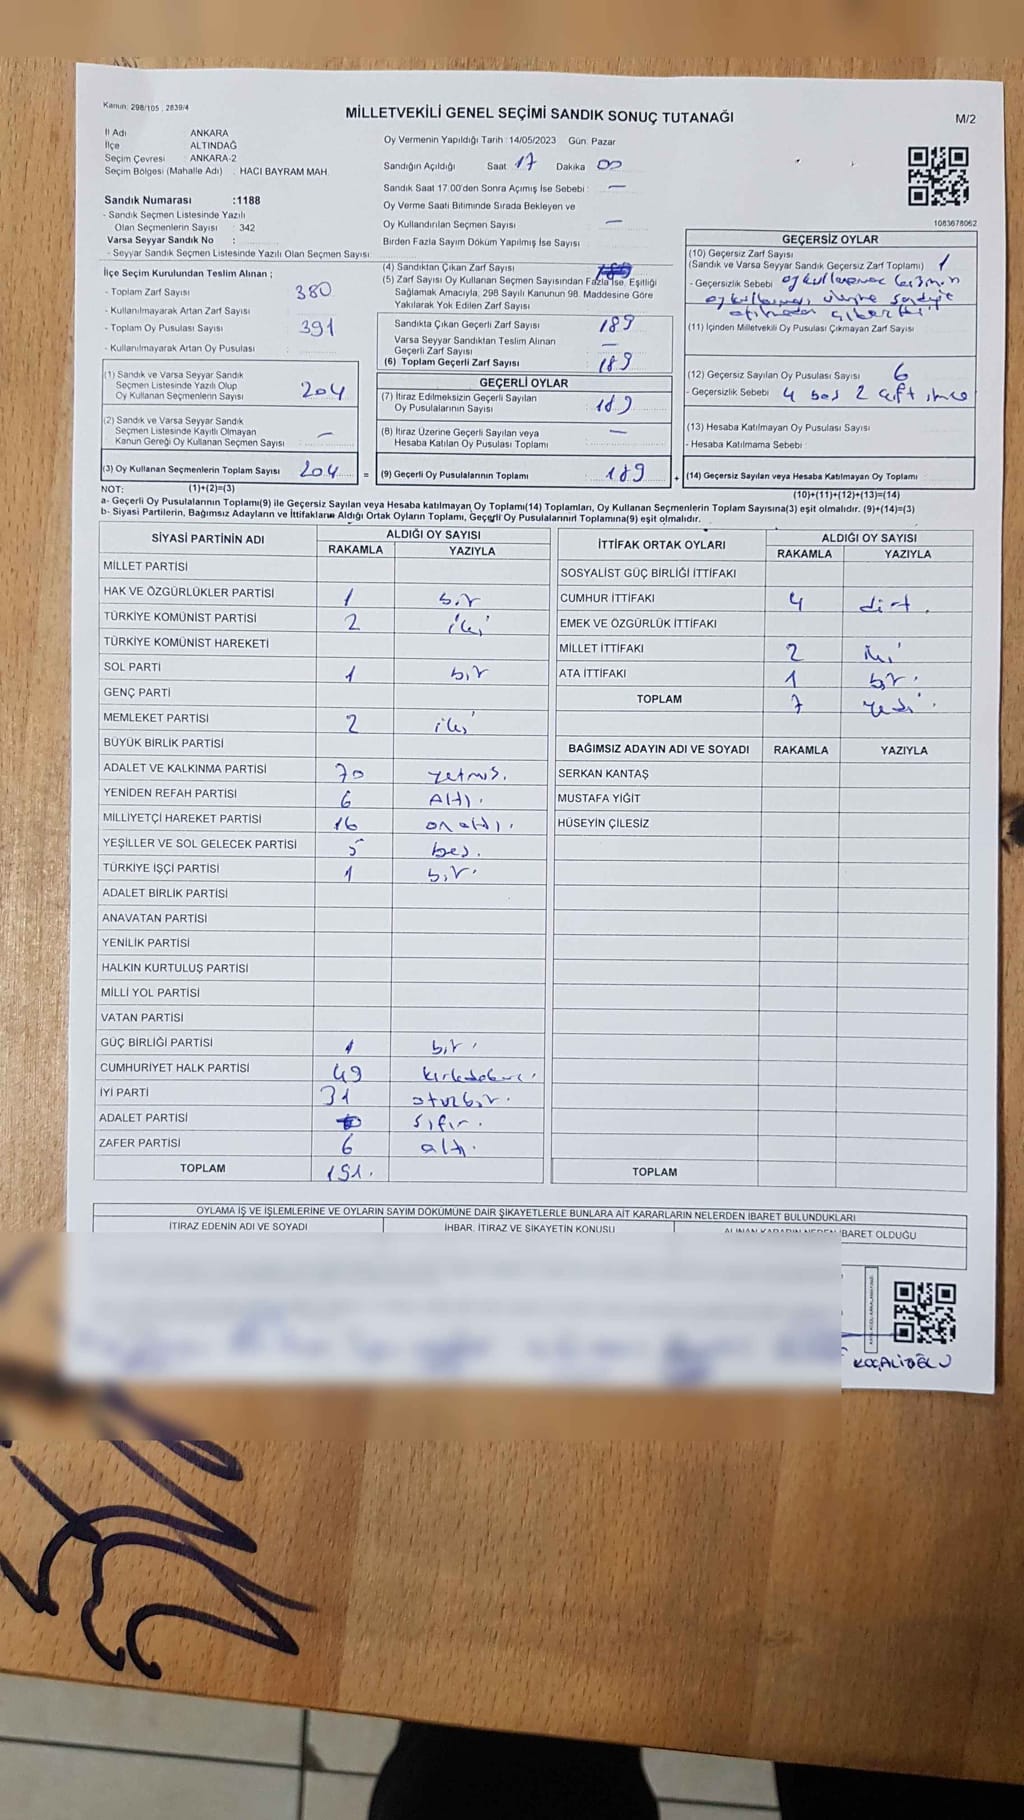 Kanun: 298/105 , 2839/4
MİLLETVEKİLİ GENEL SEÇİMİ SANDIK SONUÇ TUTANAĞI
M/2
İl Adı : ANKARA
İlçe : ALTINDAĞ
Seçim Çevresi : ANKARA-2
Seçim Bölgesi (Mahalle Adı) : HACI BAYRAM MAH.
Sandık Numarası :1188
- Sandık Seçmen Listesinde Yazılı
Olan Seçmenlerin Sayısı : 342
Varsa Seyyar Sandık No :
- Seyyar Sandık Seçmen Listesinde Yazılı Olan Seçmen Sayısı:
Oy Vermenin Yapıldığı Tarih :14/05/2023 Gün: Pazar
Sandığın Açıldığı Saat 17 Dakika 00
Sandık Saat 17.00'den Sonra Açımış İse Sebebi : —
Oy Verme Saati Bitiminde Sırada Bekleyen ve
Oy Kullandırılan Seçmen Sayısı —
Birden Fazla Sayım Döküm Yapılmış İse Sayısı
1083678062
İlçe Seçim Kurulundan Teslim Alınan ;
- Toplam Zarf Sayısı 380
- Kullanılmayarak Artan Zarf Sayısı
- Toplam Oy Pusulası Sayısı 391
- Kullanılmayarak Artan Oy Pusulası
(1) Sandık ve Varsa Seyyar Sandık
Seçmen Listesinde Yazılı Olup
Oy Kullanan Seçmenlerin Sayısı 204
(2) Sandık ve Varsa Seyyar Sandık
Seçmen Listesinde Kayıtlı Olmayan
Kanun Gereği Oy Kullanan Seçmen Sayısı : —
(3) Oy Kullanan Seçmenlerin Toplam Sayısı 204 =
(1)+(2)=(3)
(4) Sandıktan Çıkan Zarf Sayısı
(5) Zarf Sayısı Oy Kullanan Seçmen Sayısından Fazla İse, Eşitliği
Sağlamak Amacıyla, 298 Sayılı Kanunun 98. Maddesine Göre
Yakılarak Yok Edilen Zarf Sayısı
Sandıkta Çıkan Geçerli Zarf Sayısı 189
Varsa Seyyar Sandıktan Teslim Alınan
Geçerli Zarf Sayısı —
(6) Toplam Geçerli Zarf Sayısı 189
GEÇERLİ OYLAR
(7) İtiraz Edilmeksizin Geçerli Sayılan
Oy Pusulalarının Sayısı 189
(8) İtiraz Üzerine Geçerli Sayılan veya
Hesaba Katılan Oy Pusulası Toplamı —
(9) Geçerli Oy Pusulalarının Toplamı 189 +
GEÇERSİZ OYLAR
(10) Geçersiz Zarf Sayısı
(Sandık ve Varsa Seyyar Sandık Geçersiz Zarf Toplamı) 1
- Geçersizlik Sebebi
(11) İçinden Milletvekili Oy Pusulası Çıkmayan Zarf Sayısı
(12) Geçersiz Sayılan Oy Pusulası Sayısı 6
- Geçersizlik Sebebi 4 boş 2 çift
(13) Hesaba Katılmayan Oy Pusulası Sayısı
- Hesaba Katılmama Sebebi
(14) Geçersiz Sayılan veya Hesaba Katılmayan Oy Toplamı
(10)+(11)+(12)+(13)=(14)
NOT:
a- Geçerli Oy Pusulalarının Toplamı(9) ile Geçersiz Sayılan veya Hesaba katılmayan Oy Toplamı(14) Toplamları, Oy Kullanan Seçmenlerin Toplam Sayısına(3) eşit olmalıdır. (9)+(14)=(3)
b- Siyasi Partilerin, Bağımsız Adayların ve İttifakların Aldığı Ortak Oyların Toplamı, Geçerli Oy Pusulalarının Toplamına(9) eşit olmalıdır.
SİYASİ PARTİNİN ADI ALDIĞI OY SAYISI
RAKAMLA YAZIYLA
MİLLET PARTİSİ
HAK VE ÖZGÜRLÜKLER PARTİSİ 1 bir
TÜRKİYE KOMÜNİST PARTİSİ 2 iki
TÜRKİYE KOMÜNİST HAREKETİ
SOL PARTİ 1 bir
GENÇ PARTİ
MEMLEKET PARTİSİ 2 iki
BÜYÜK BİRLİK PARTİSİ
ADALET VE KALKINMA PARTİSİ 70 yetmiş.
YENİDEN REFAH PARTİSİ 6 Altı.
MİLLİYETÇİ HAREKET PARTİSİ 16 on altı.
YEŞİLLER VE SOL GELECEK PARTİSİ 5 beş.
TÜRKİYE İŞÇİ PARTİSİ 1 bir.
ADALET BİRLİK PARTİSİ
ANAVATAN PARTİSİ
YENİLİK PARTİSİ
HALKIN KURTULUŞ PARTİSİ
MİLLİ YOL PARTİSİ
VATAN PARTİSİ
GÜÇ BİRLİĞİ PARTİSİ 1 bir.
CUMHURİYET HALK PARTİSİ 49 kırkdokuz.
İYİ PARTİ 31 otuzbir.
ADALET PARTİSİ sıfır.
ZAFER PARTİSİ 6 altı.
TOPLAM 191.
İTTİFAK ORTAK OYLARI ALDIĞI OY SAYISI
RAKAMLA YAZIYLA
SOSYALİST GÜÇ BİRLİĞİ İTTİFAKI
CUMHUR İTTİFAKI 4 dört.
EMEK VE ÖZGÜRLÜK İTTİFAKI
MİLLET İTTİFAKI 2 iki
ATA İTTİFAKI 1 bir.
TOPLAM 7 yedi.
BAĞIMSIZ ADAYIN ADI VE SOYADI RAKAMLA YAZIYLA
SERKAN KANTAŞ
MUSTAFA YİĞİT
HÜSEYİN ÇİLESİZ
TOPLAM
OYLAMA İŞ VE İŞLEMLERİNE VE OYLARIN SAYIM DÖKÜMÜNE DAİR ŞİKAYETLERLE BUNLARA AİT KARARLARIN NELERDEN İBARET BULUNDUKLARI
İTİRAZ EDENİN ADI VE SOYADI İHBAR, İTİRAZ VE ŞİKAYETİN KONUSU İBARET OLDUĞU
KOÇALİOĞLU